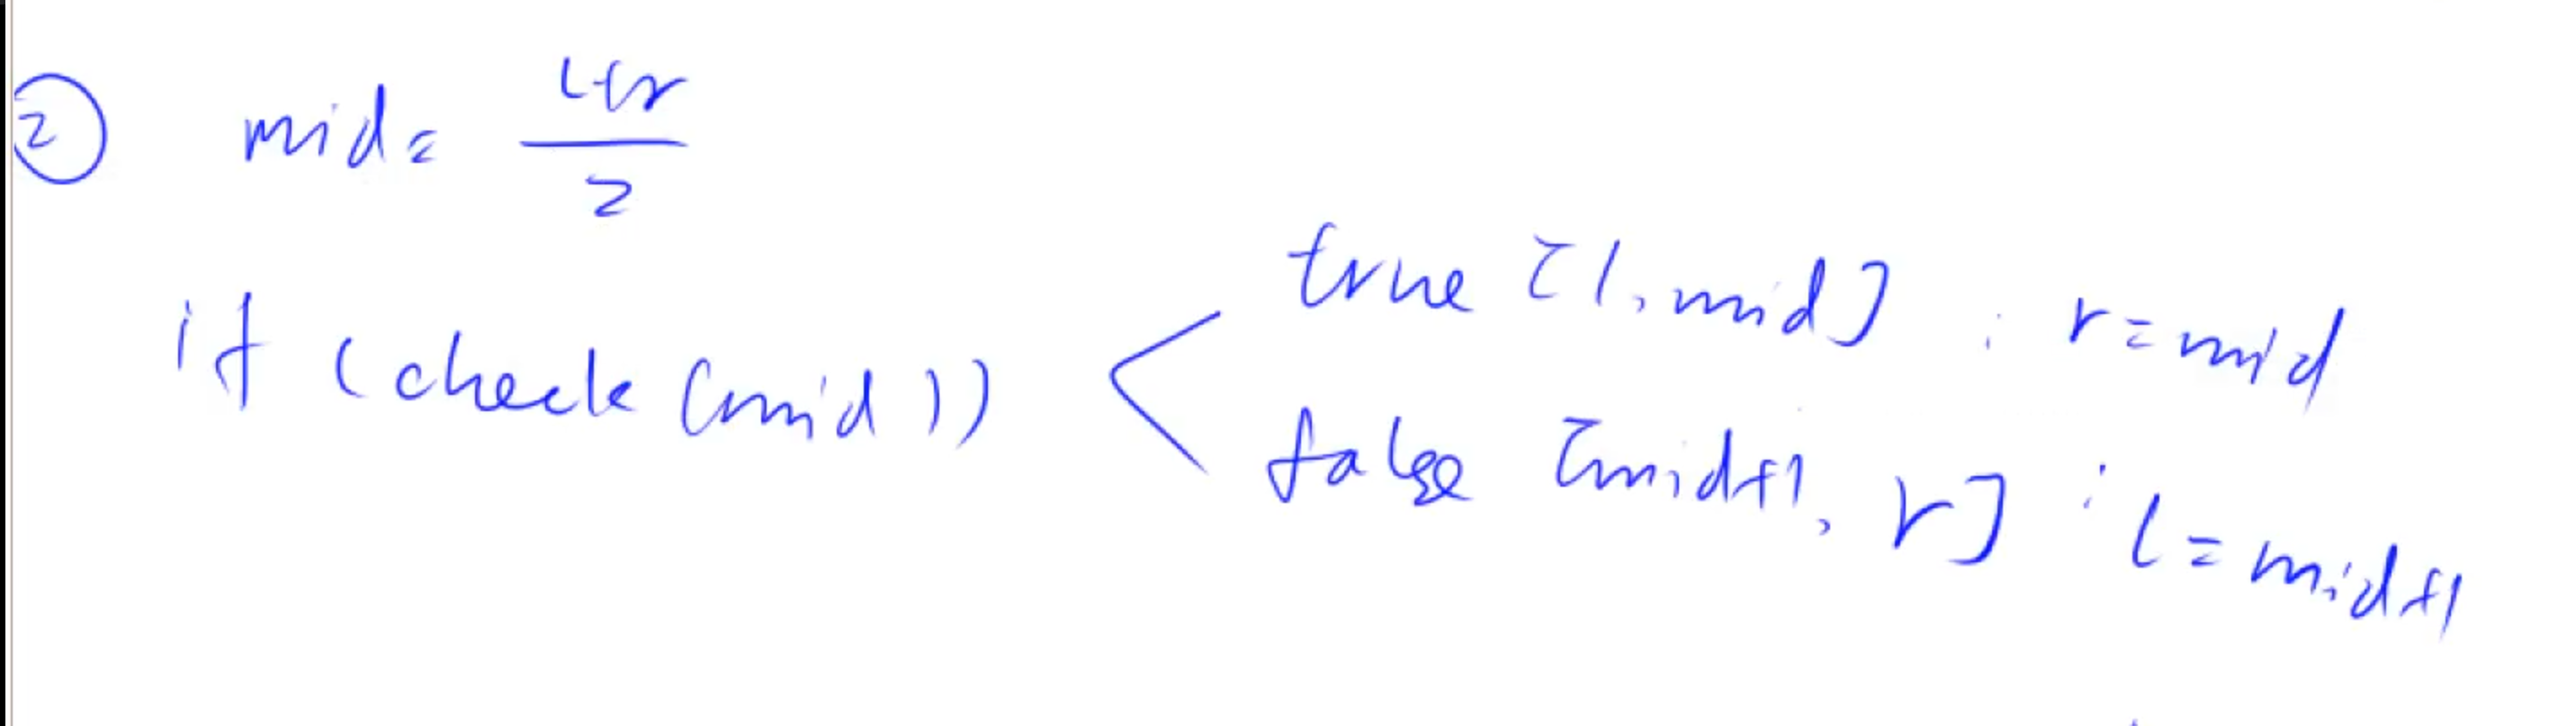 ② mid = (l+r)/2
if (check (mid))
true [l, mid] : r = mid
false [mid+1, r] : l = mid+1